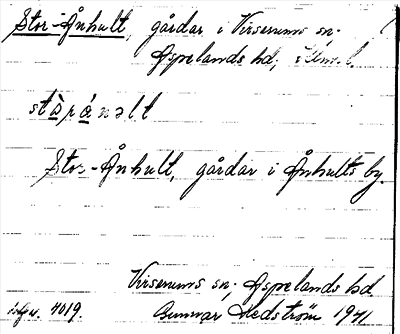 Stor-Ånhult, gårdar i Virserums sn.
Aspelands hd,
Stor-Ånhult, gårdar i Ånhults by.
Virserums sn, Aspelands hd
4019. Gunnar Hedström 1941